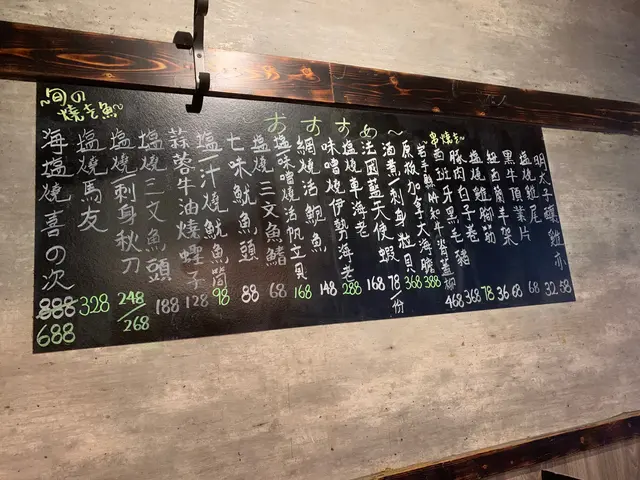 ~旬の
燒き魚~
海塩燒喜の次
888
688
塩燒馬友
328
塩燒/刺身秋刀
248/268
塩燒三文魚頭
188
蒜蓉牛油燒蟶子
128
塩/汁燒魷魚筒
98
七味魷魚頭
88
塩燒三文魚鯖
68
おすすめ~
塩/味噌燒活帆立貝
168
網燒活鮑魚
148
味噌燒伊勢海老
288
塩燒車海老
168
法国藍天使蝦
78/份
酒煮刺身粒貝
368
原板加拿大海膽
388
~串燒き~
岩手縣A4和牛
468
西班牙黑毛豬
368
豚肉白子卷
78
塩燒雞腳筋
36
紐西蘭羊架
68
黑牛頂業片
68
塩燒雞尾
32
明太子釀雞亦
58